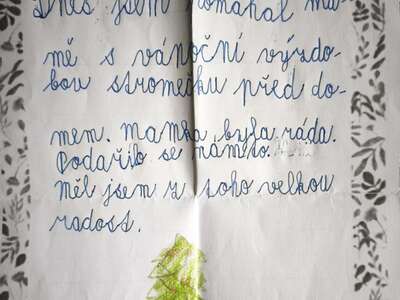 Dnes jsem pomáhal ma-
mě s vánoční výzdo-
bou stromečku před do-
mem. Mamka byla ráda.
Podařilo se nám to.
Měl jsem z toho velkou
radost.